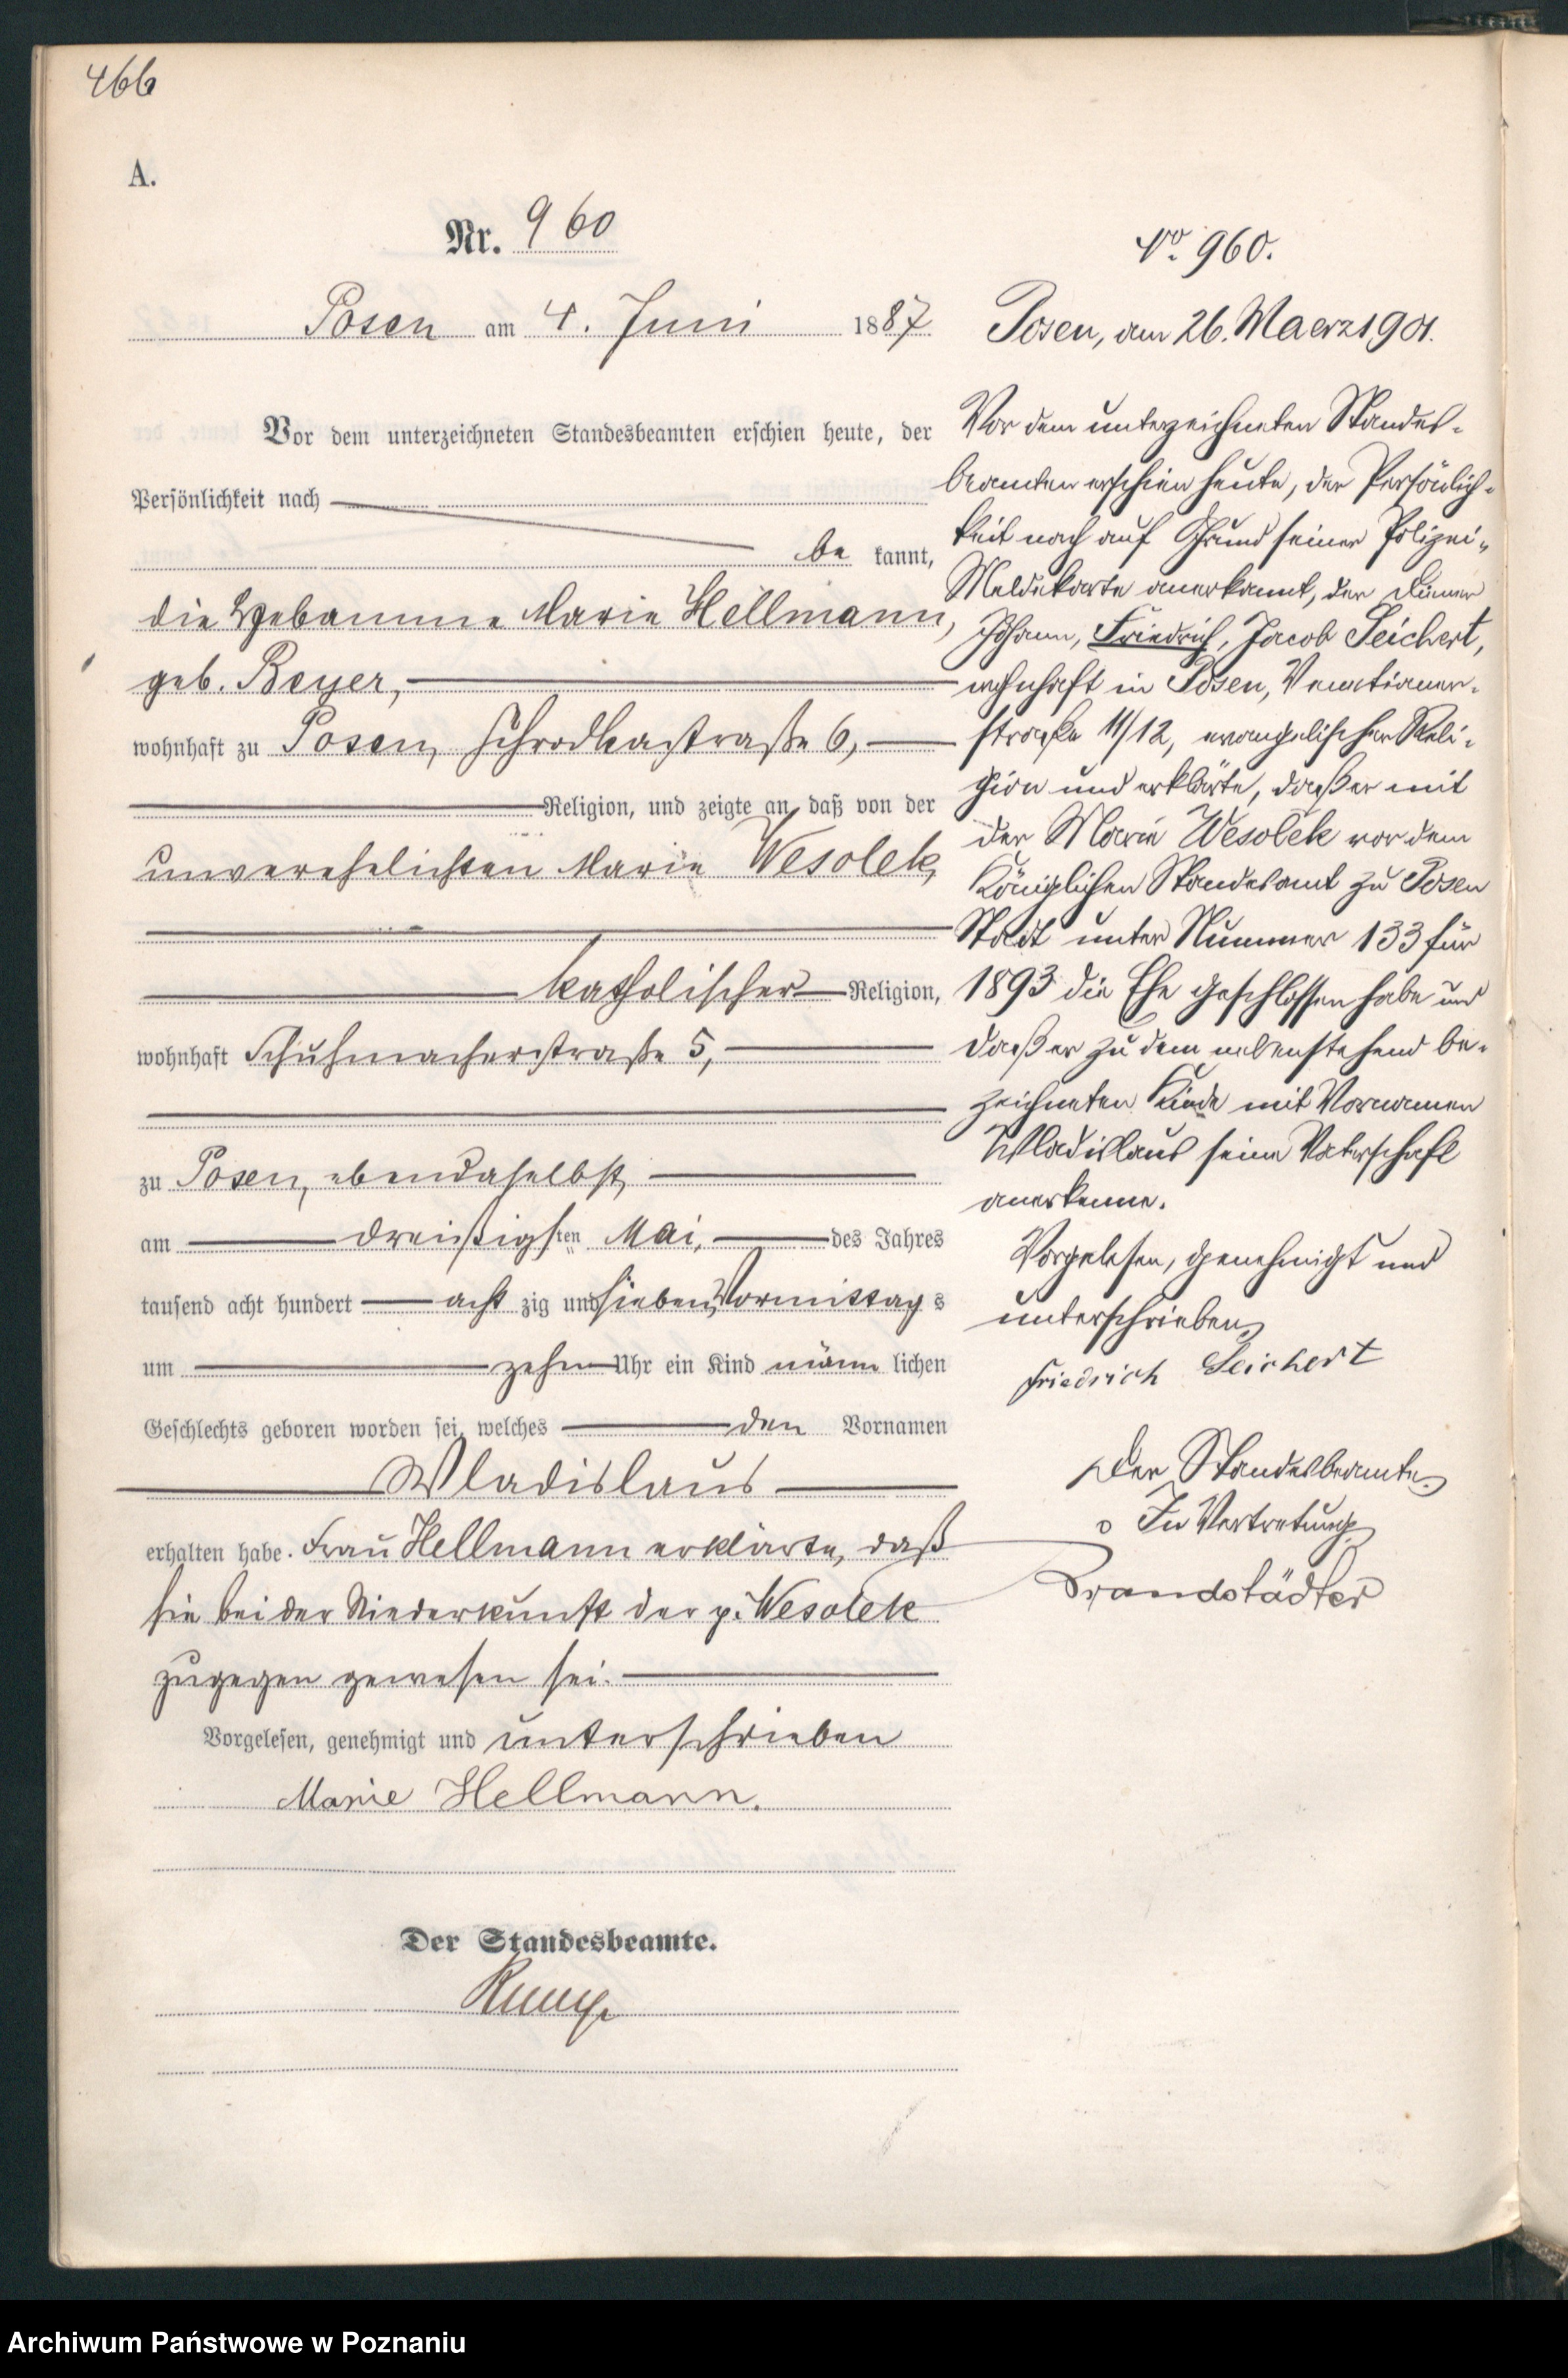 466
A.
Nr. 960
Posen am 4. Juni 1887
Vor dem unterzeichneten Standesbeamten erschien heute, der
Persönlichkeit nach
be kannt,
die Hebamme Marie Hellmann,
geb. Beyer,
wohnhaft zu Posen, Schrodkastraße 6,
Religion, und zeigte an, daß von der
unverehelichten Marie Wesolek,
katholischer Religion,
wohnhaft Schuhmacherstraße 5,
zu Posen, ebendaselbst,
am dreißigsten Mai, des Jahres
tausend acht hundert acht zig und sieben, Vormittag s
um zehn Uhr ein Kind männ lichen
Geschlechts geboren worden sei, welches den Vornamen
Wladislaus
erhalten habe. Frau Hellmann erklärte, daß
sie bei der Niederkunft der p. Wesolek
zugegen gewesen sei.
Vorgelesen, genehmigt und unterschrieben
Marie Hellmann.
Der Standesbeamte.
No. 960.
Posen, am 26. Maerz 1901.
Vor dem unterzeichneten Standes-
beamten erschien heute, der Persönlich-
keit nach auf Grund seiner Polizei-
Meldekarte anerkannt, der Diener
Johann, Friedrich, Jacob Seichert,
wohnhaft in Posen, Venetianer-
straße 11/12, evangelischer Reli-
gion und erklärte, daß er mit
der Marie Wesolek vor dem
Königlichen Standesamt zu Posen
Stadt unter Nummer 133 für
1893 die Ehe geschlossen habe und
daß er zu dem nebenstehend be-
zeichneten Kinde mit Vornamen
Wladislaus seine Vaterschaft
anerkenne.
Vorgelesen, genehmigt und
unterschrieben
Friedrich Seichert
Der Standesbeamte
In Vertretung
Brandstädter
Archiwum Państwowe w Poznaniu